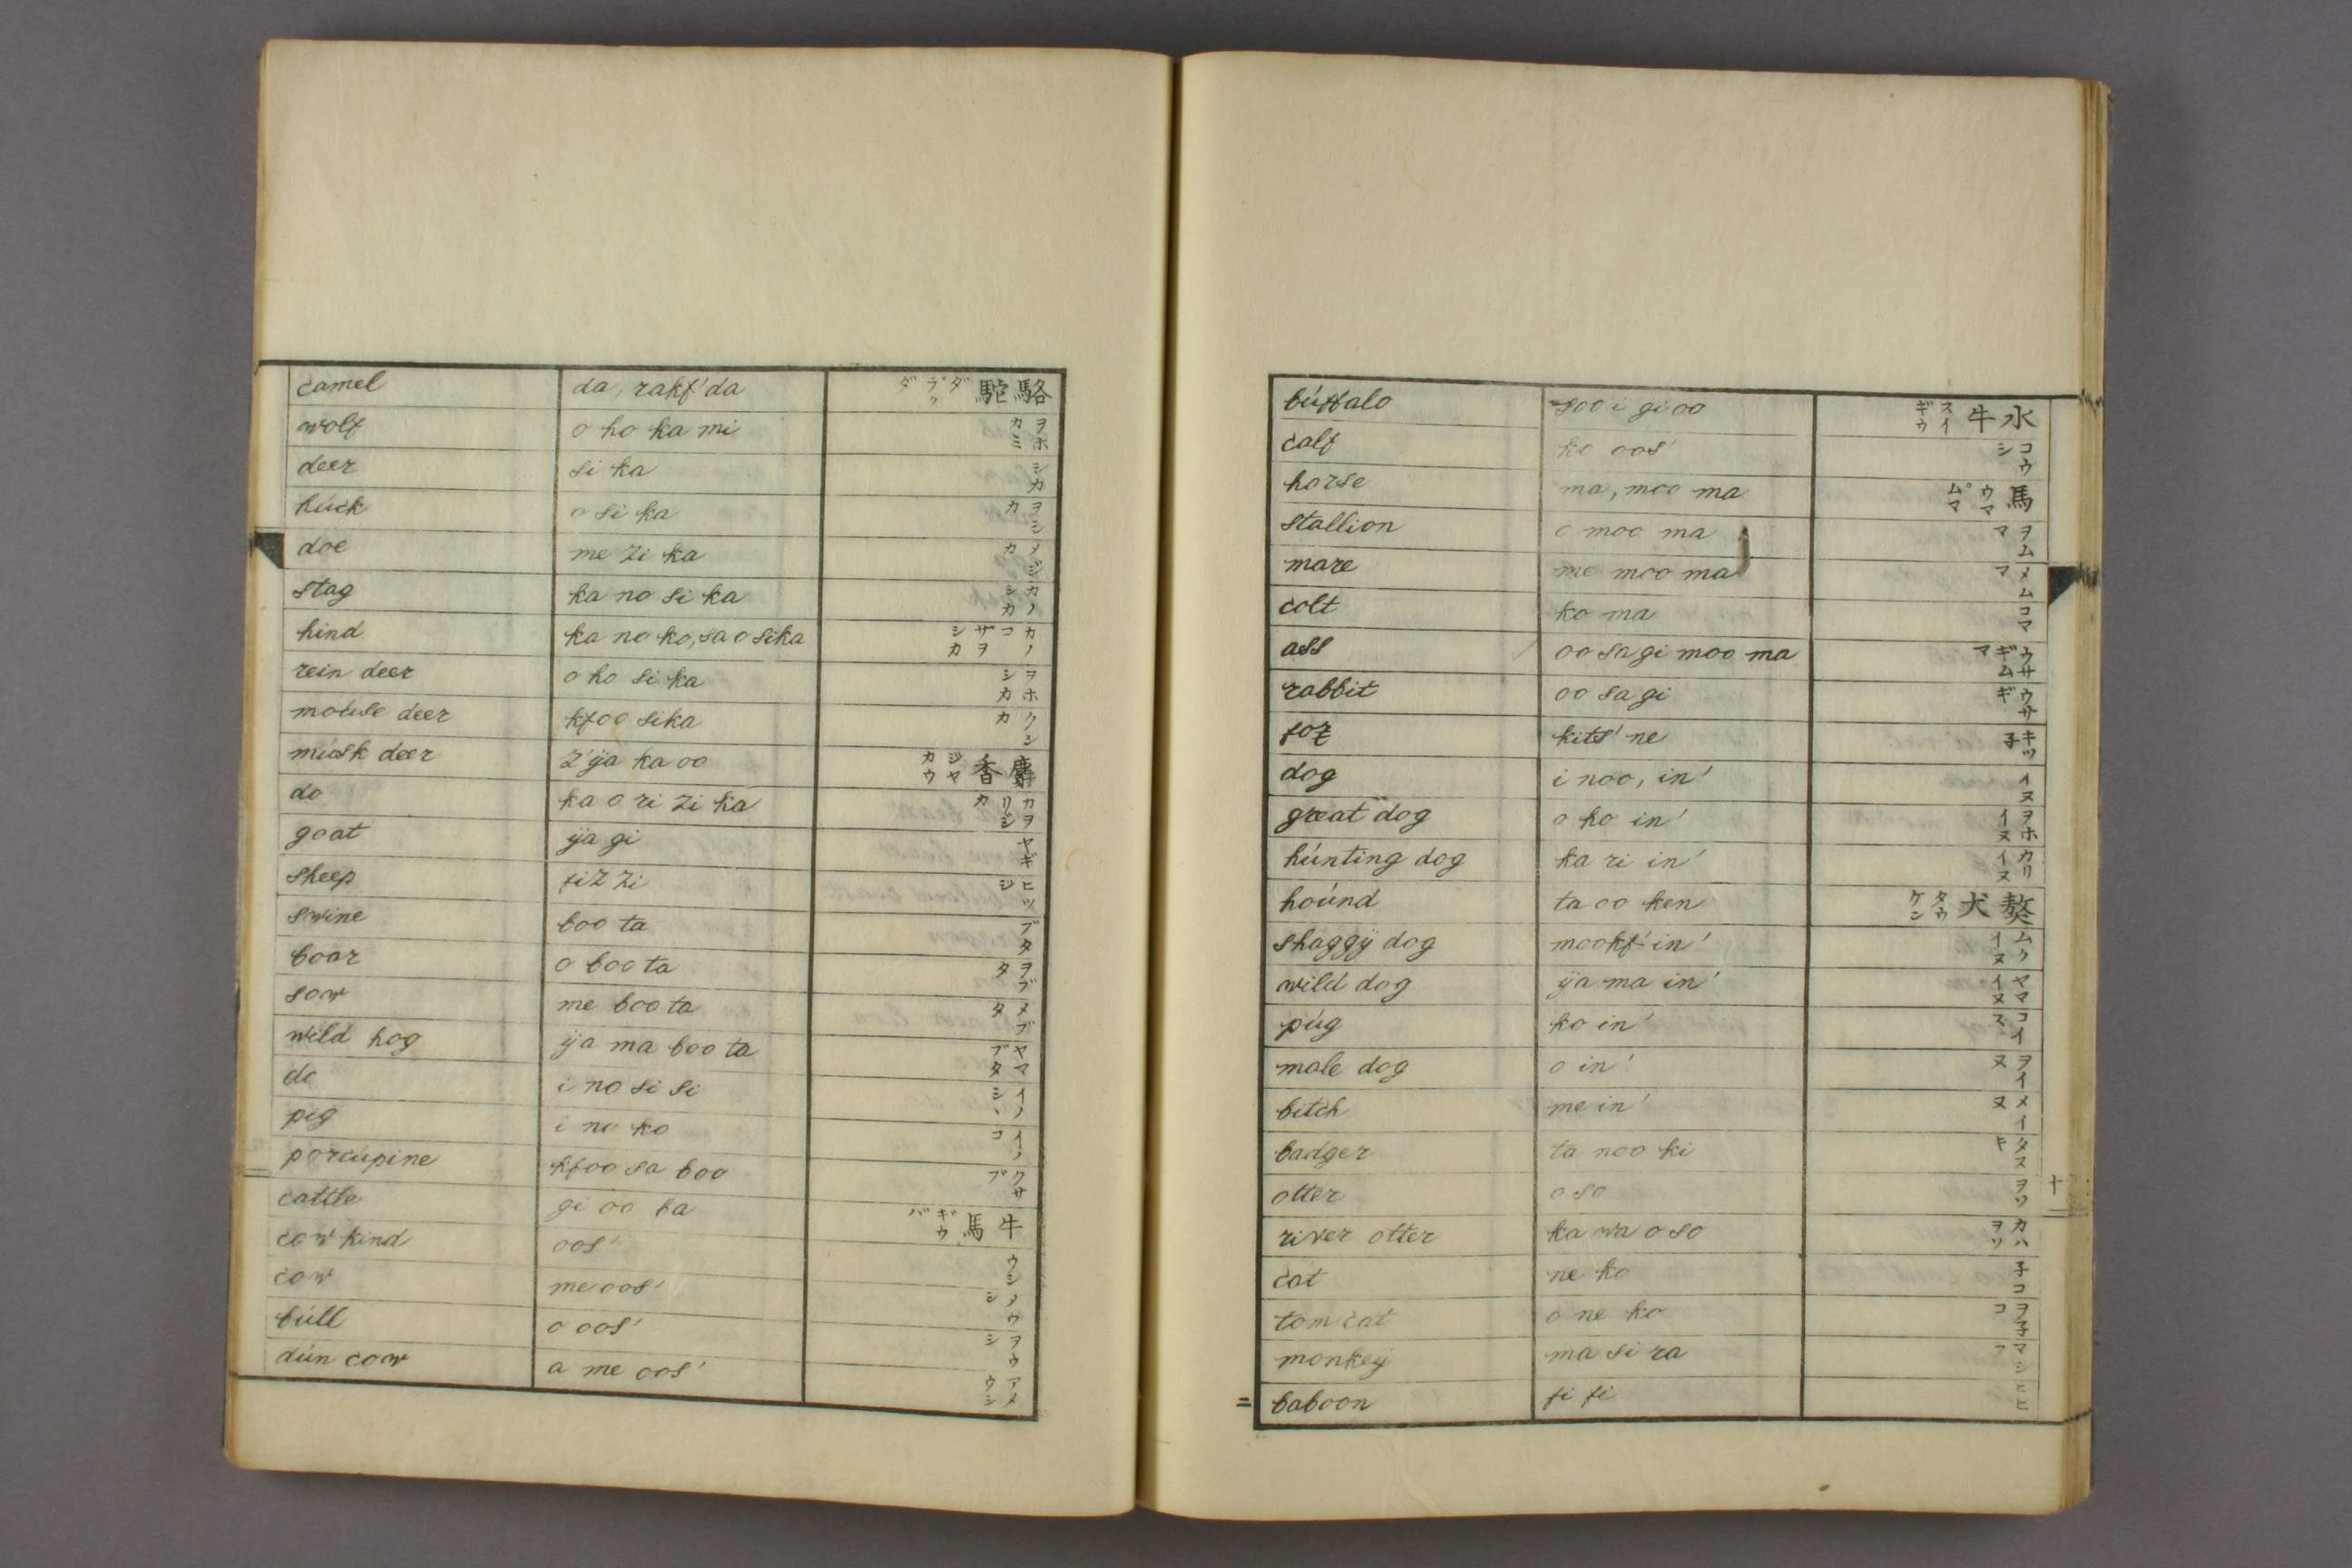 camel da, rakf'da 駱駝 ダ ラクダ
wolf o ho ka mi ヲホカミ
deer si ka シカ
húck o si ka ヲシカ
doe me zi ka メジカ
stag ka no si ka カノシカ
hind ka no ko, sa o sika カノコ サヲシカ
rein deer o ho si ka ヲホシカ
moúse deer kfoo sika クシカ
músk deer z'ÿa ka oo 麝香 ジヤカウ
do ka o ri zi ka カヲリジカ
goat ÿa gi ヤギ
sheep fiz zi ヒツジ
swine boo ta ブタ
boar o boo ta ヲブタ
sow me boo ta メブタ
wild hog ÿa ma boo ta ヤマブタ
do i no si si イノシヽ
pig i no ko イノコ
porcúpine kfoo sa boo クサブ
cattle gi oo ba 牛馬 ギウバ
cow kind oos' ウシ
cow me oos' メウシ
búll o oos' ヲウシ
dún cow a me oos' アメウシ
búffalo soo i gi oo 水牛 スイギウ
calf ko oos' コウシ
horse ma, moo ma 馬 ウマ ムマ
stallion o moo ma ヲムマ
mare me moo ma メムマ
colt ko ma コマ
ass oo sa gi moo ma ウサギムマ
rabbit oo sa gi ウサギ
fox kits' ne キツ子
dog i noo, in' イヌ
great dog o ho in' ヲホイヌ
húnting dog ka ri in' カリイヌ
hoúnd ta oo ken 獒犬 タウケン
shaggÿ dog mookf' in' ムクイヌ
wild dog ÿa ma in' ヤマイヌ
púg ko in' コイヌ
male dog o in' ヲイヌ
bitch me in' メイヌ
badger ta noo ki タヌキ
otter o so ヲソ
十
river otter ka wa o so カハヲソ
cat ne ko 子コ
tom cat o ne ko ヲ子コ
monkeÿ ma si ra マシラ
baboon fi fi ヒヒ